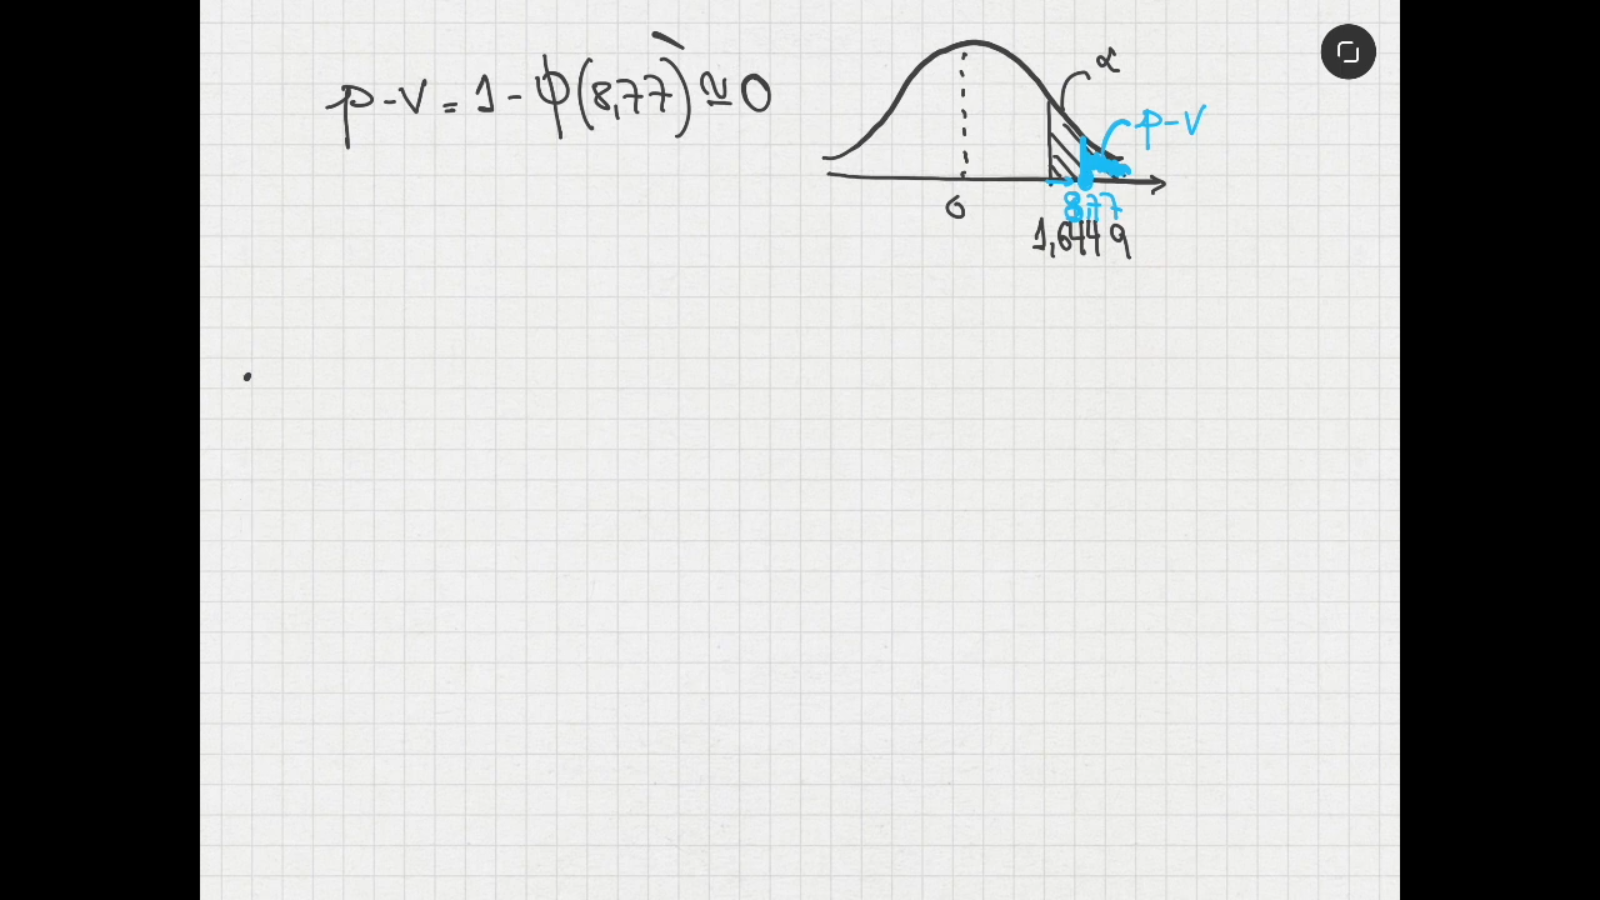 p-V = 1 - ϕ(8,77) ≅ 0
α
p-V
0
8,77
1,6449